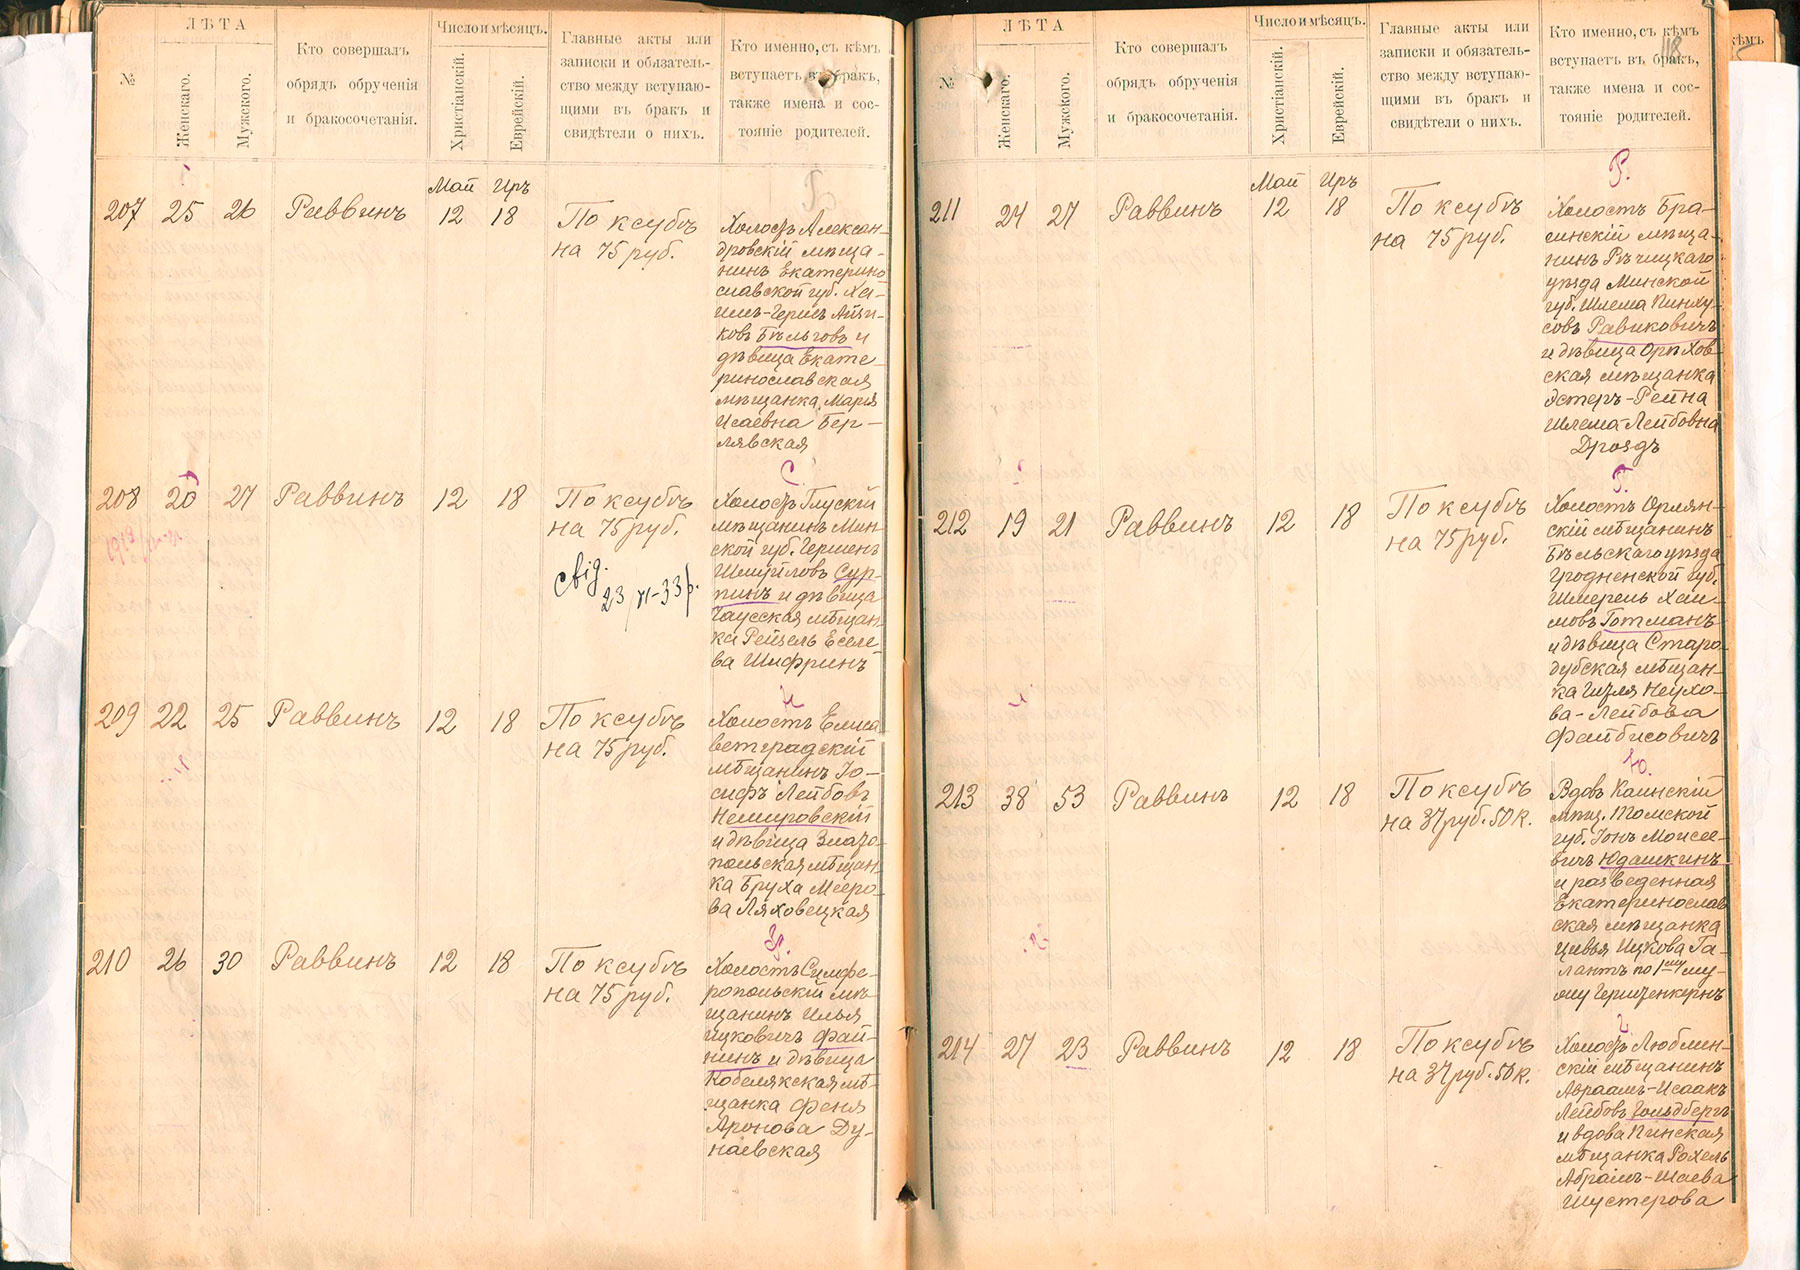 №
ЛѢТА
Женскаго.
Мужского.
Кто совершалъ
обрядъ обрученія
и бракосочетанія.
Число и мѣсяцъ.
Христіанскій.
Еврейскій.
Главные акты или
записки и обязатель-
ство между вступаю-
щими въ бракъ и
свидѣтели о нихъ.
Кто именно, съ кѣмъ
вступаетъ въ бракъ,
также имена и сос-
тояніе родителей.
207 25 26 Раввинъ
Май Иръ
12 18
По ксубѣ
на 75 руб.
Холостъ Алексан-
дровскій мѣща-
нинъ Екатерино
славской губ. Ха-
имъ-Гершъ Айзи-
ковъ Бѣльговъ и
дѣвица Екате-
ринославская
мѣщанка Марія
Исаевна Бер-
лявская
208 20 27 Раввинъ 12 18
По ксубѣ
на 75 руб.
свід.
23/VI-33р.
С.
Холостъ Глускій
мѣщанинъ Мин-
ской губ. Гершенъ
Шмуйловъ Сур-
пинъ и дѣвица
Чаусская мѣщан-
ка Рейзель Еселе-
ва Шифринъ
209 22 25 Раввинъ 12 18
По ксубѣ
на 75 руб.
Холостъ Елиса
ветградскій
мѣщанинъ Іо-
сифъ Лейбовъ
Немировскій
и дѣвица Злато-
польская мѣщан-
ка Бруха Мееро-
ва Ляховецкая
210 26 30 Раввинъ 12 18
По ксубѣ
на 75 руб.
Холостъ Симфе-
ропольскій мѣ-
щанинъ Илья
Ицковичъ Фай-
нинъ и дѣвица
Кобелякская мѣ-
щанка Феня
Аронова Ду-
наевская
118
№
ЛѢТА
Женскаго.
Мужского.
Кто совершалъ
обрядъ обрученія
и бракосочетанія.
Число и мѣсяцъ.
Христіанскій.
Еврейскій.
Главные акты или
записки и обязатель-
ство между вступаю-
щими въ бракъ и
свидѣтели о нихъ.
Кто именно, съ кѣмъ
вступаетъ въ бракъ,
также имена и сос-
тояніе родителей.
кѣмъ
211 24 27 Раввинъ
Май Иръ
12 18
По ксубѣ
на 75 руб.
Р.
Холостъ Бра-
гинскій мѣща-
нинъ Рѣчицкаго
уѣзда Минской
губ. Шлема Пинху-
совъ Равиковичъ
и дѣвица Орѣхов-
ская мѣщанка
Эстеръ-Рейна
Шлема-Лейбовна
Дроздъ
212 19 21 Раввинъ 12 18
По ксубѣ
на 75 руб.
Г.
Холостъ Орлян-
скій мѣщанинъ
Бѣльскаго уѣзда
Гродненской губ.
Шмерель Хаи-
мовъ Готманъ
и дѣвица Старо
дубская мѣщан-
ка Гизля Неухо-
ва-Лейбова
Файбисовичъ
213 38 53 Раввинъ 12 18
По ксубѣ
на 37 руб. 50 к.
Ю.
Вдовъ Каинскій
мѣщ. Томской
губ. Іонъ Моисее-
вичъ Юдашкинъ
и разведенная
Екатеринослав
ская мѣщанка
Цивья Ицкова Га-
лантъ по 1му му-
жу Герценкернъ
214 27 23 Раввинъ 12 18
По ксубѣ
на 37 руб. 50 к.
Г.
Холостъ Люблин-
скій мѣщанинъ
Авраамъ-Исаакъ
Лейбовъ Гольдбергъ
и вдова Пинская
мѣщанка Рохель
Абрамъ-Шаева
Шустерова